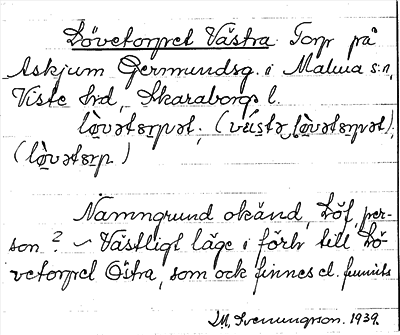 Lövetorpet Västra. Torp på
Askjum Germundsg. i Malma s:n,
Viste hrd, Skaraborgs l.
lø̀vətɛrpət; (vɛ́stə lø̀vətɛrpət);
(lø̀vətɛrp)
Namngrund okänd, Löf, per-
son? ~ Västligt läge i förh. till Lö-
vetorpet Östra, som ock finnes el. funnits
I.M. Svenungson. 1939.